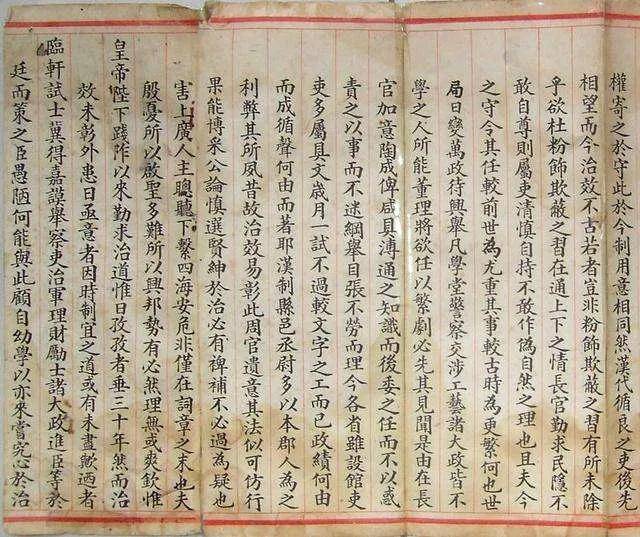 權寄之於守此於今制用意相同然漢代循良之吏後先
相望而今治效不古若者豈非粉飾欺蔽之習有所未除
乎欲杜粉飾欺蔽之習在通上下之情長官勤求民隱不
敢自尊則屬吏清慎自持不敢作偽自然之理也且夫今
之守令其任較前世為尤重其事較古時為更繁何也世
局日變萬政待興舉凡學堂警察交涉工藝諸大政皆不
學之人所能董理將欲任以繁劇必先其見聞是由在長
官加意陶成俾咸具溥通之知識而後委之任而不以惑
責之以事而不迷綱舉目張不勞而理今各省雖設館吏
吏多屬具文歲月一試不過較文字之工而已政績何由
而成循聲何由而著耶漢制縣邑丞尉多以本郡人為之
利弊其所夙昔故治效易彰此周官遺意其法似可仿行
果能博采公論慎選賢紳於治必有裨補不必過為疑也
害上廣人主聰聽下繫四海安危非僅在詞章之末也夫
殷憂所以啟聖多難所以興邦勢有必然理無或爽欽惟
皇帝陛下踐阼以來勤求治道惟日孜孜者垂三十年然而治
效未彰外患日亟意者因時制宜之道或有未盡歟迺者
臨軒試士冀得嘉謨舉察吏治軍理財勵士諸大政進臣等於
廷而策之臣愚陋何能與此顧自幼學以亦來嘗究心於治